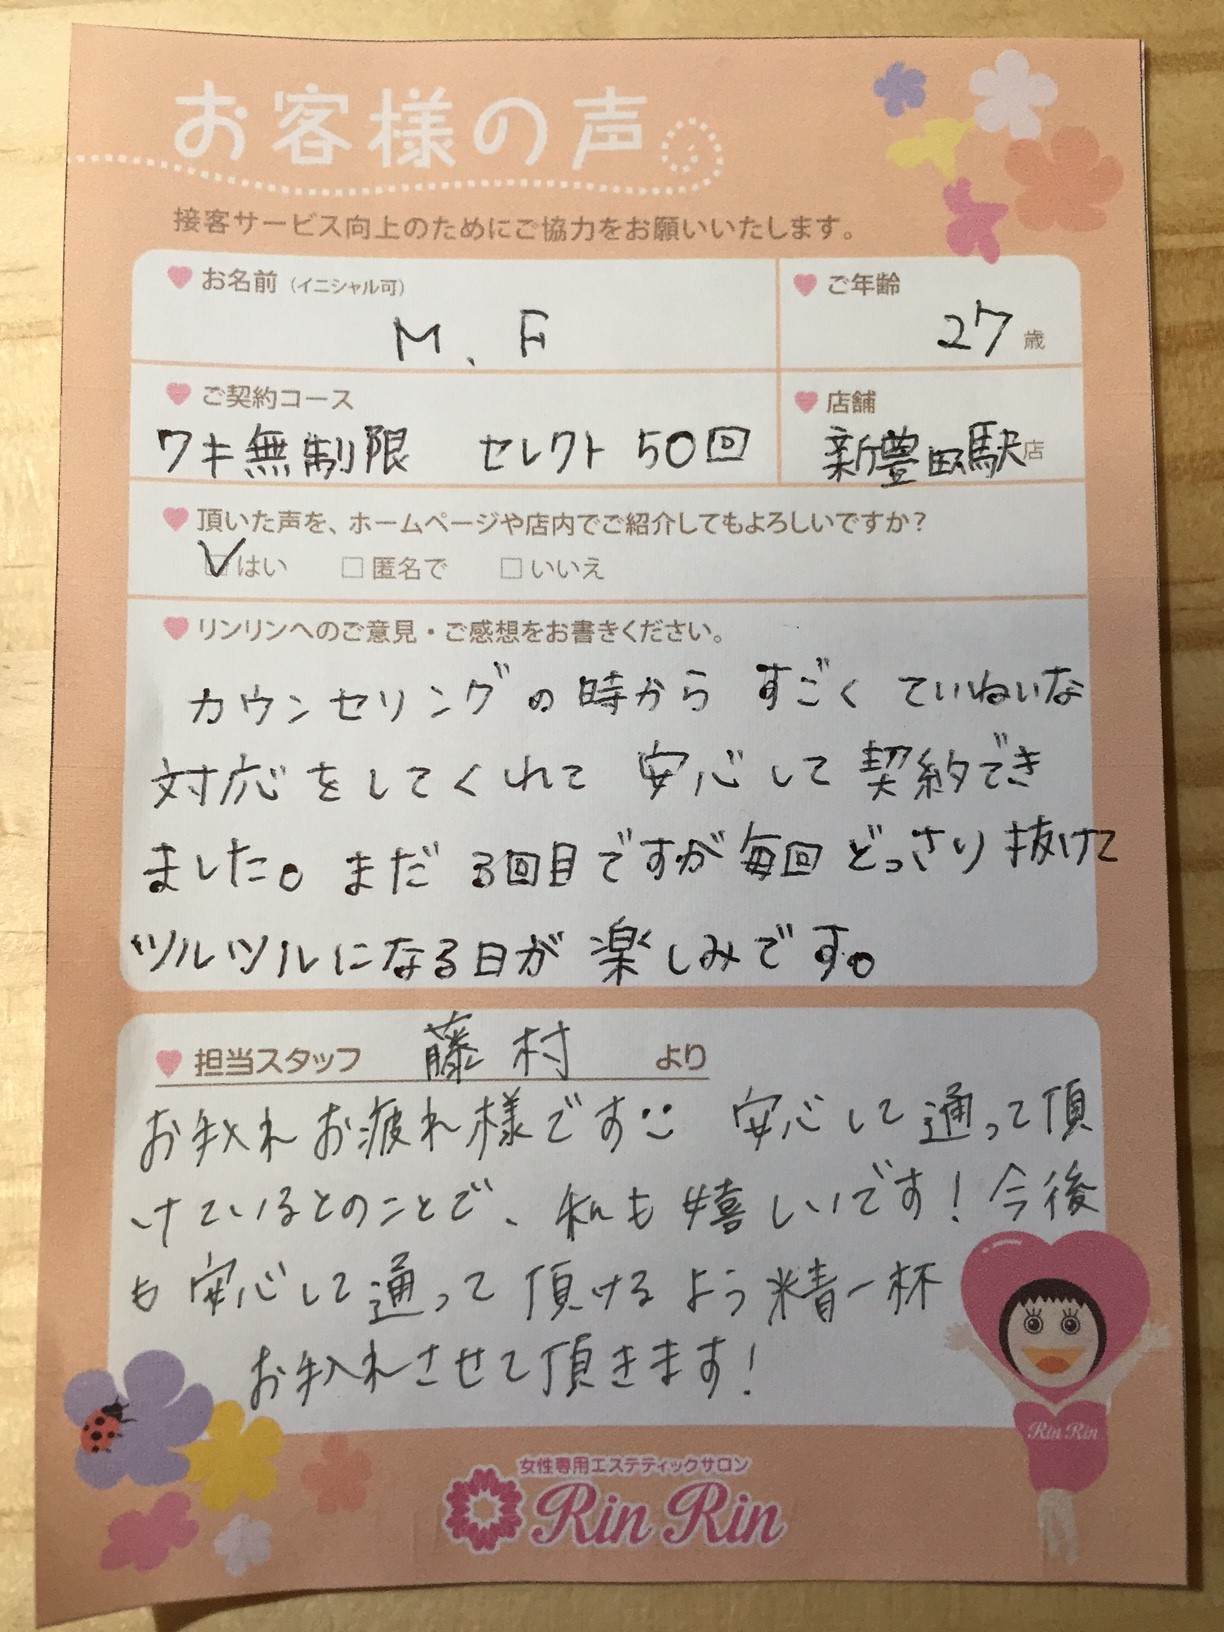 お客様の声
接客サービス向上のためにご協力をお願いいたします。
お名前（イニシャル可）
M. F
ご年齢
27歳
ご契約コース
ワキ無制限 セレクト 50回
店舗
新豊田駅店
頂いた声を、ホームページや店内でご紹介してもよろしいですか？
☑はい □匿名で □いいえ
リンリンへのご意見・ご感想をお書きください。
カウンセリングの時から すごく ていねいな
対応をしてくれて 安心して 契約でき
ました。まだ 3回目ですが毎回 どっさり 抜けて
ツルツルになる日が 楽しみです。
担当スタッフ 藤村 より
お手入れお疲れ様です 安心して通って頂
けているとのことで、私も嬉しいです！今後
も安心して通って頂けるよう精一杯
お手入れさせて頂きます！
Rin Rin
女性専用エステティックサロン
Rin Rin